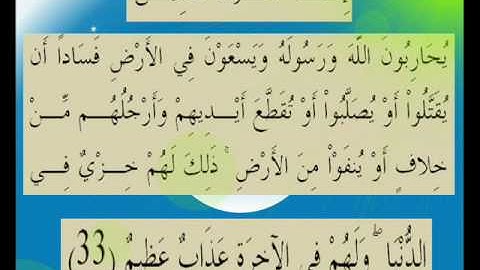 يُحَارِبُونَ اللَّهَ وَرَسُولَهُ وَيَسْعَوْنَ فِي الأَرْضِ فَسَاداً أَن
يُقَتَّلُواْ أَوْ يُصَلَّبُواْ أَوْ تُقَطَّعَ أَيْدِيهِمْ وَأَرْجُلُهُم مِّنْ
خِلافٍ أَوْ يُنفَوْاْ مِنَ الأَرْضِ ۚ ذَلِكَ لَهُمْ خِزْيٌ فِي
الدُّنْيَا ۖ وَلَهُمْ فِي الآخِرَةِ عَذَابٌ عَظِيمٌ (33)